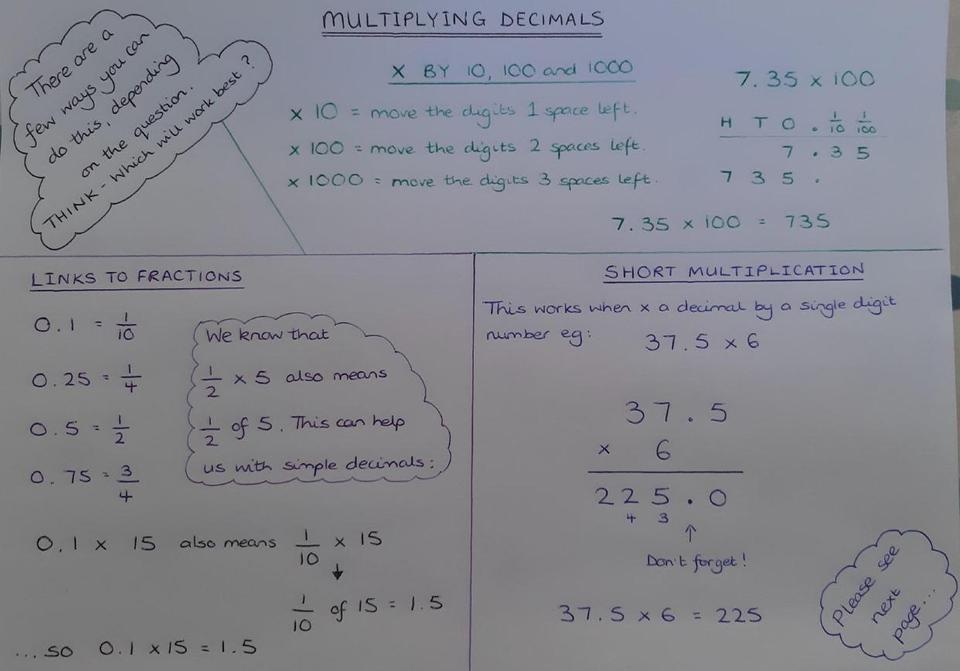 MULTIPLYING DECIMALS
There are a
few ways you can
do this, depending
on the question.
THINK - Which will work best?
X BY 10, 100 and 1000
x 10 = move the digits 1 space left.
x 100 = move the digits 2 spaces left.
x 1000 = move the digits 3 spaces left.
7.35 x 100
H T O . 1/10 1/100
7 . 3 5
7 3 5 .
7.35 x 100 = 735
LINKS TO FRACTIONS
0.1 = 1/10
0.25 = 1/4
0.5 = 1/2
0.75 = 3/4
We know that
1/2 x 5 also means
1/2 of 5. This can help
us with simple decimals:
0.1 x 15 also means 1/10 x 15
↓
1/10 of 15 = 1.5
...so 0.1 x 15 = 1.5
SHORT MULTIPLICATION
This works when x a decimal by a single digit
number eg: 37.5 x 6
37.5
x 6
225.0
4 3
↑
Don't forget!
37.5 x 6 = 225
Please see
next
page...